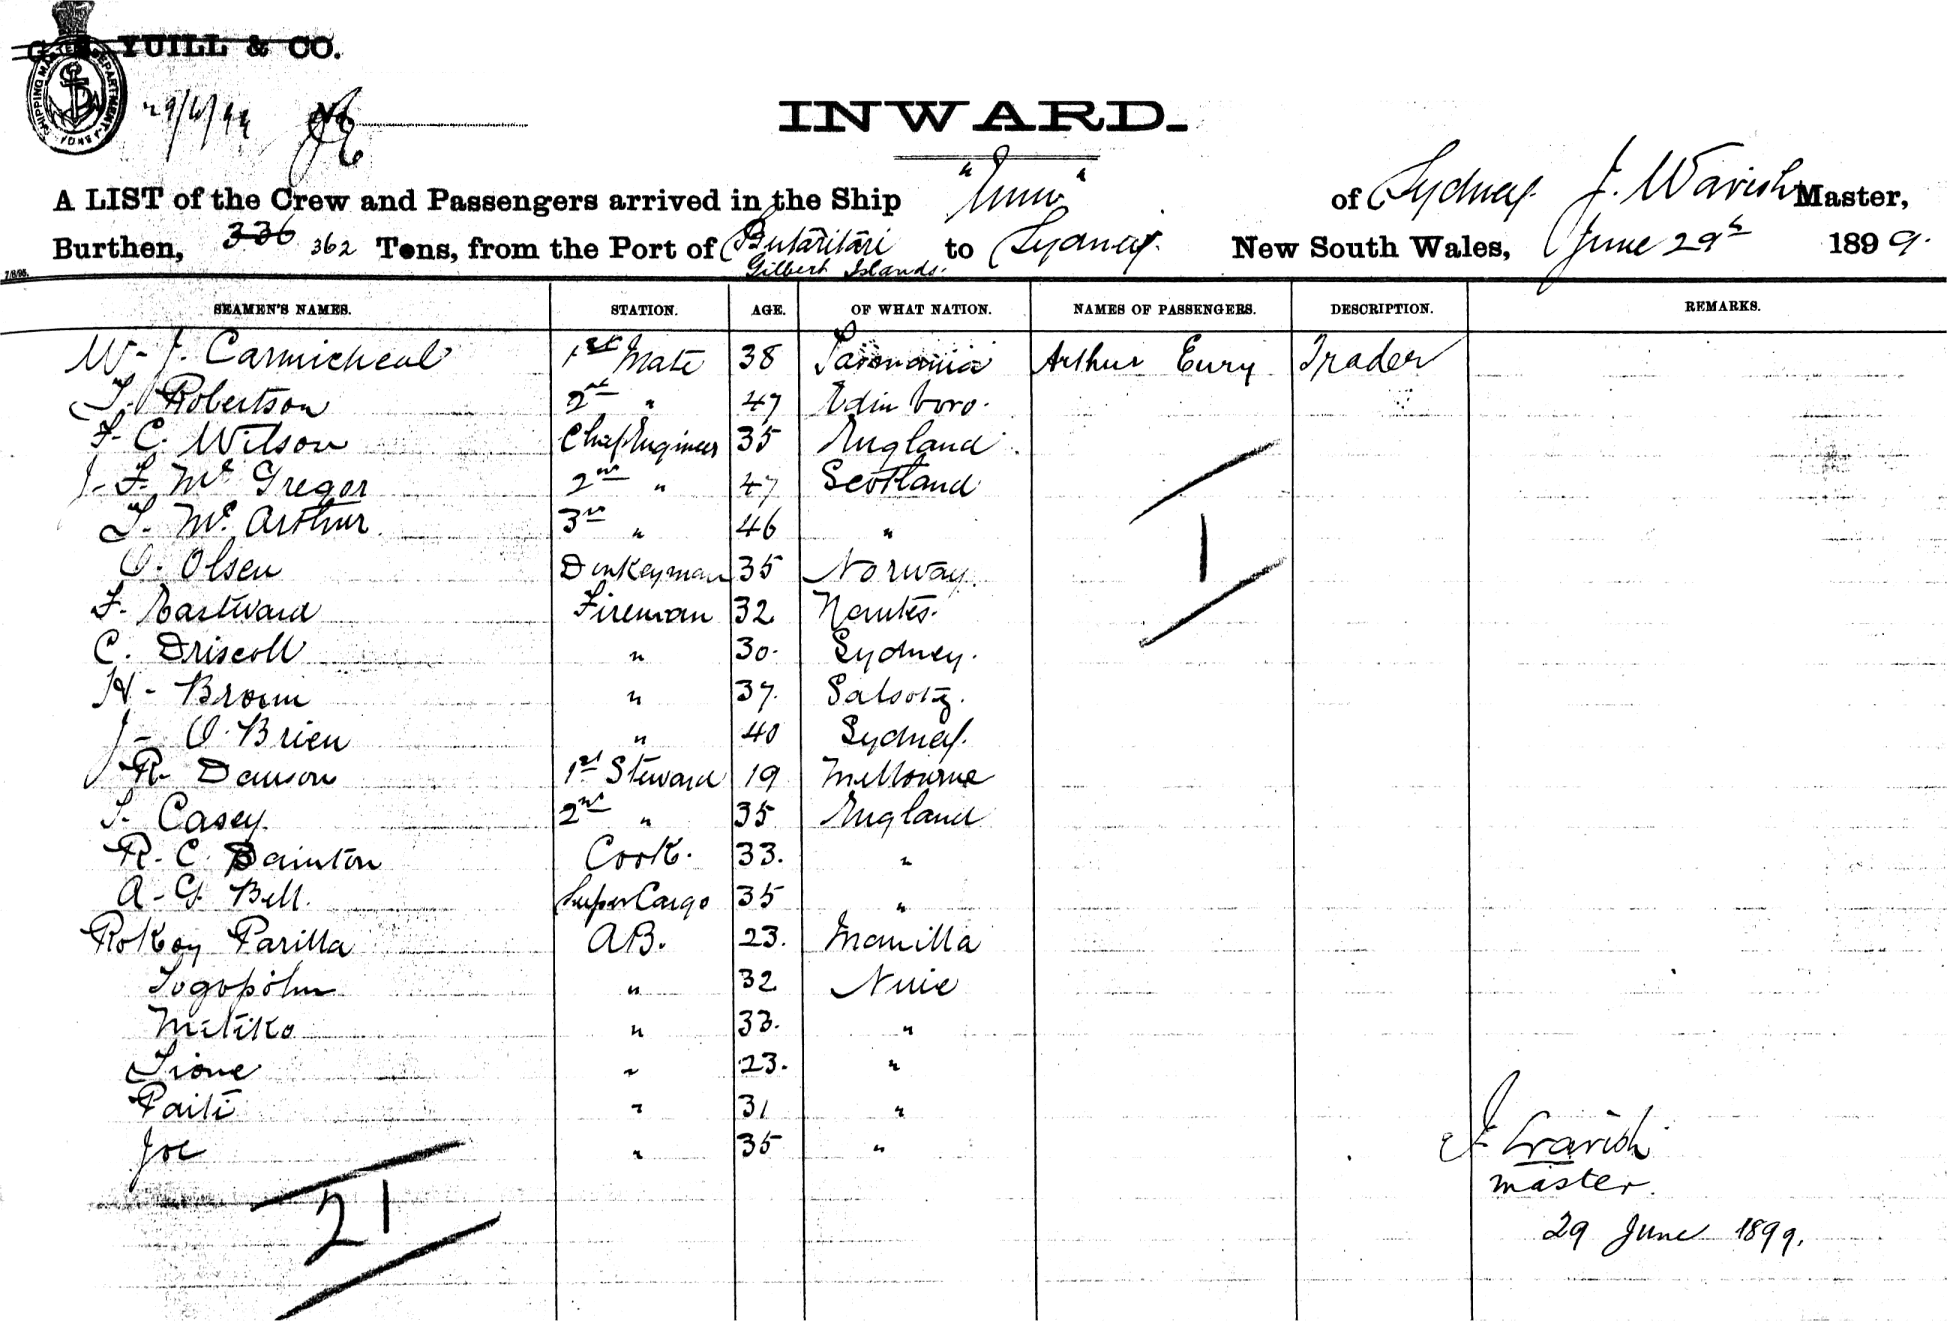 YUILL & CO.
SHIPPING MASTER DEPARTMENT
29/6/99
INWARD.
A LIST of the Crew and Passengers arrived in the Ship " " of Sydney J. Wavish Master,
Burthen, 336 362 Tons, from the Port of Butaritari Gilbert Islands. to Sydney New South Wales, June 29th 1899.
SEAMEN'S NAMES. STATION. AGE. OF WHAT NATION. NAMES OF PASSENGERS. DESCRIPTION. REMARKS.
W. J. Carmicheal 1st Mate 38 Tasmania Arthur Eury Trader
T. Robertson 2nd " 47 Edinboro.
F. C. Wilson Chief Engineer 35 England
J. F. McGregor 2nd " 47 Scotland
T. McArthur 3rd " 46 "
O. Olsen Donkeyman 35 Norway.
F. Eastward Fireman 32 Nantes.
C. Driscoll " 30. Sydney.
H. Brown " 37.
J. O'Brien " 40 Sydney.
R. Dawson 1st Steward 19 Melbourne
T. Casey. 2nd " 35 England
R. C. Bainton Cook. 33. "
A. G. Bell. SuperCargo 35 "
Rokoy Parilla AB. 23. Manilla
Togopólu " 32 Nuie
Mitiko " 33. "
Sione " 23. "
Paiti " 31 "
Joe " 35 "
1
21
J. Wavish
master.
29 June 1899.